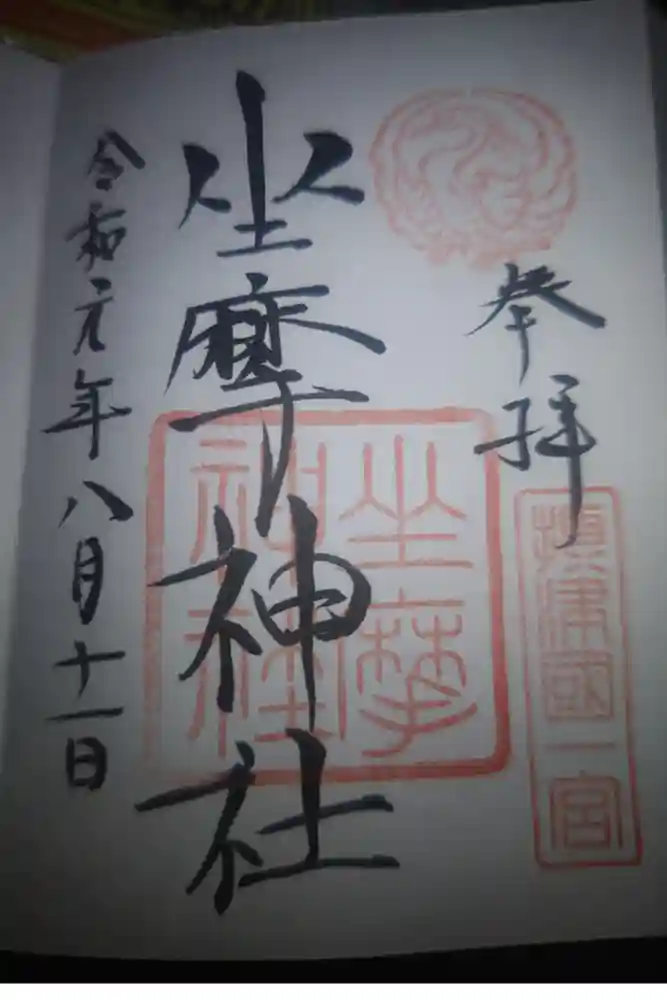 奉拝
攝津國一宮
坐摩神社
坐摩
神社
令和元年八月十一日